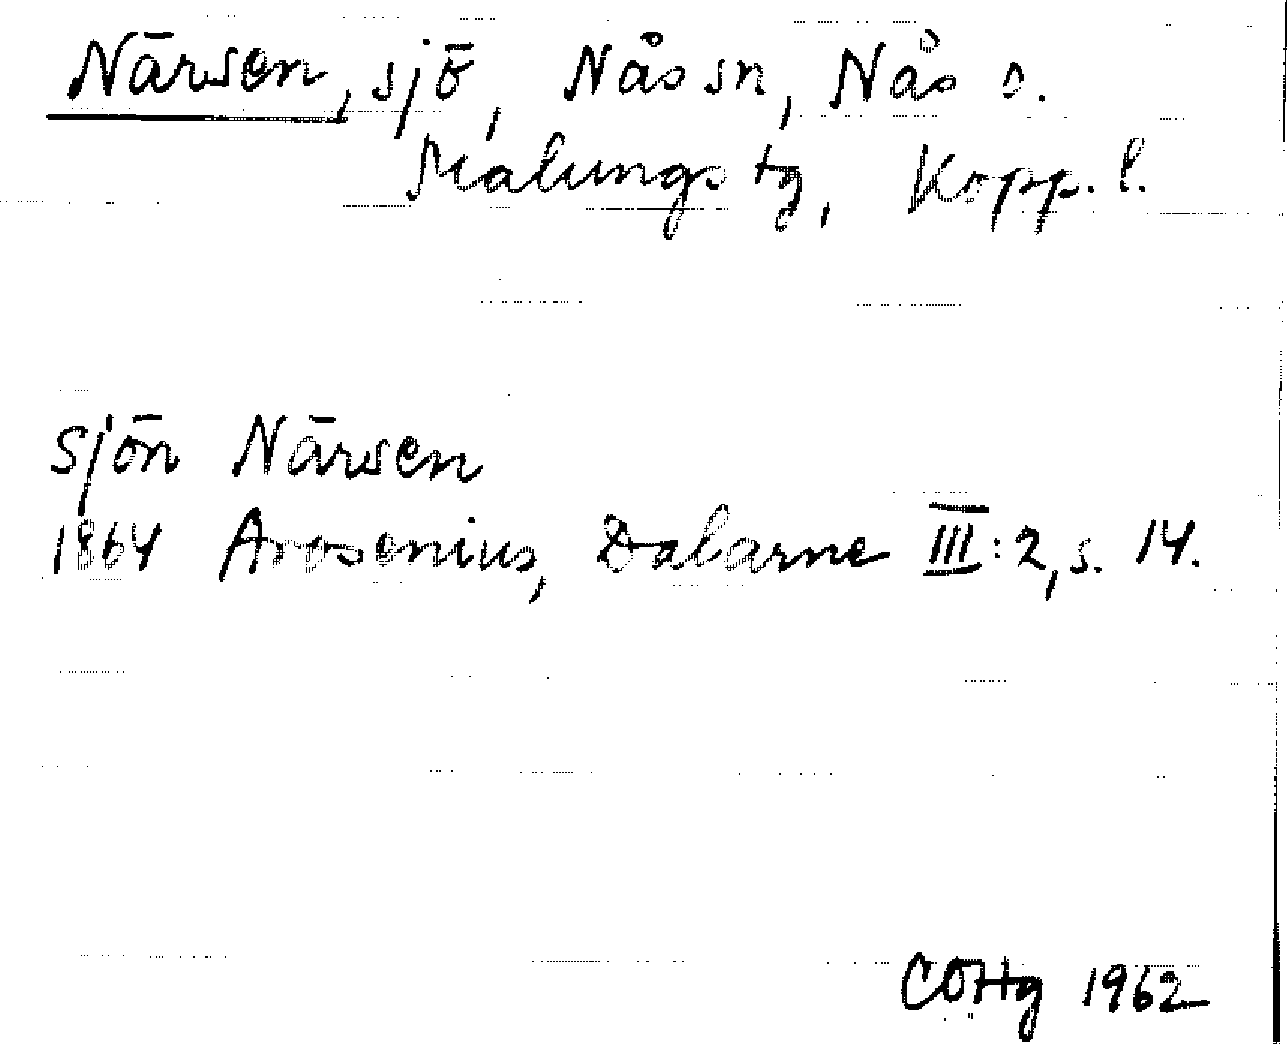 Närsen, sjö, Nås sn, Nås s.
Malungs tg, Kopp. l.
Sjön Närsen
1864 Arosenius, Dalarne III:2, s. 14.
COHg 1962